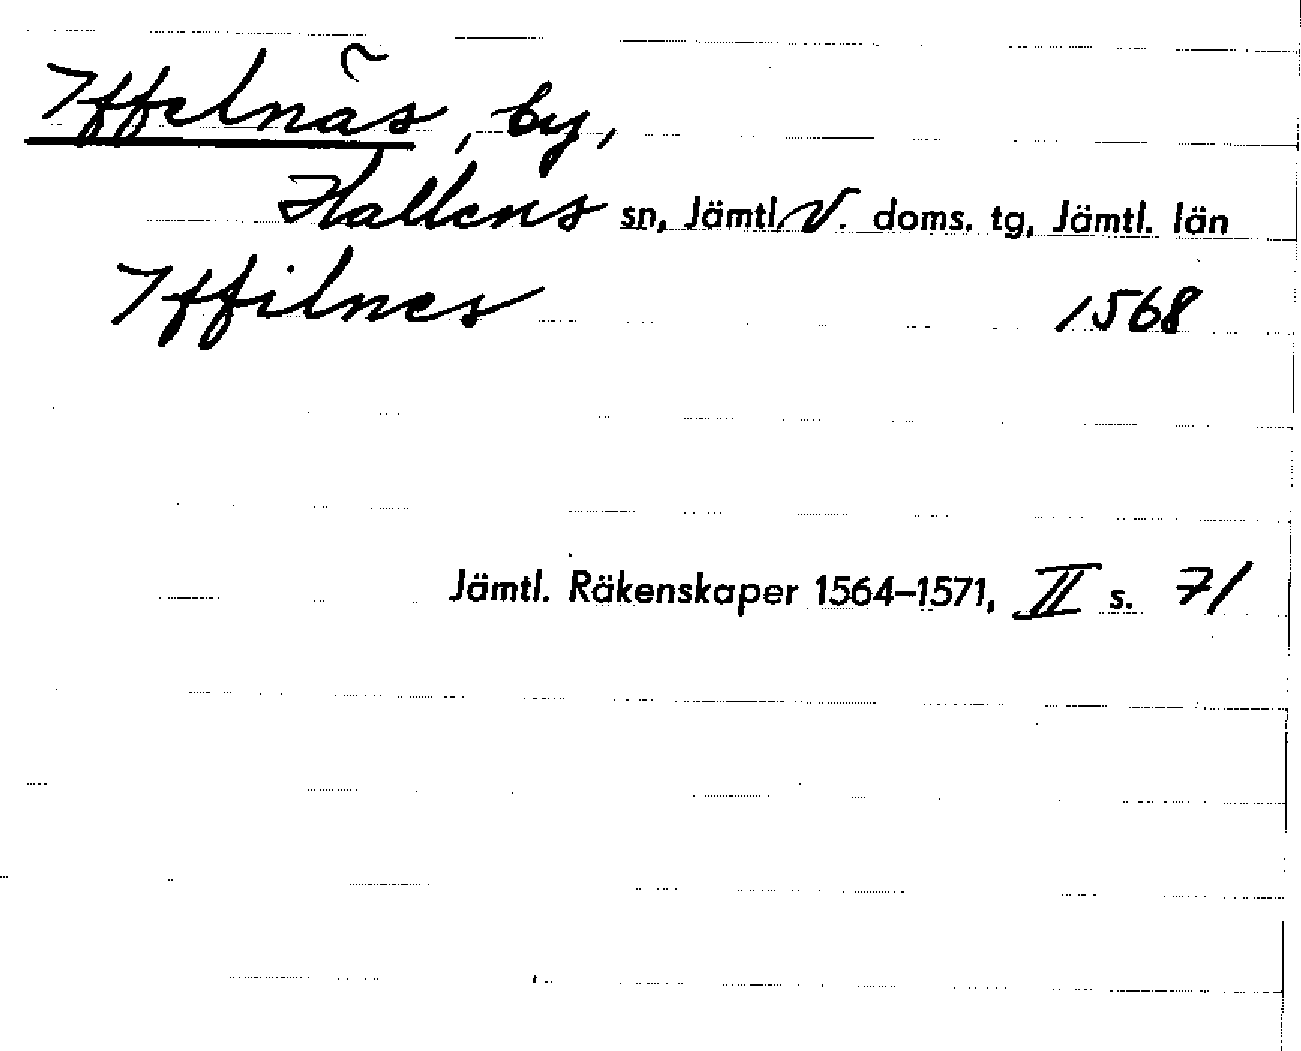 Yffelnäs, by,
Hallens sn, Jämtl. V. doms. tg, Jämtl. län
Yffilnes 1568
Jämtl. Räkenskaper 1564–1571, II s. 71